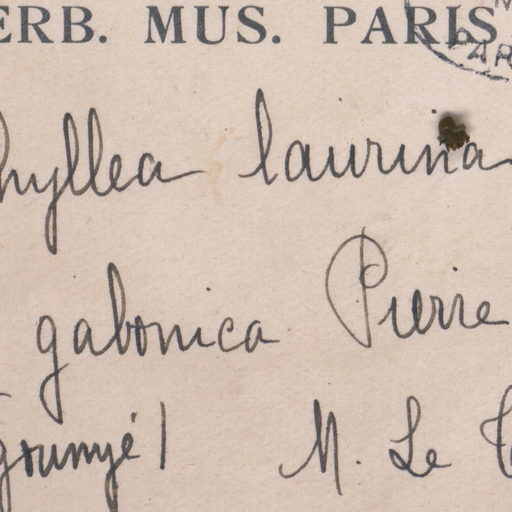 ERB. MUS. PARIS
hyllea laurina
gabonica Pierre
grunyé M. Le